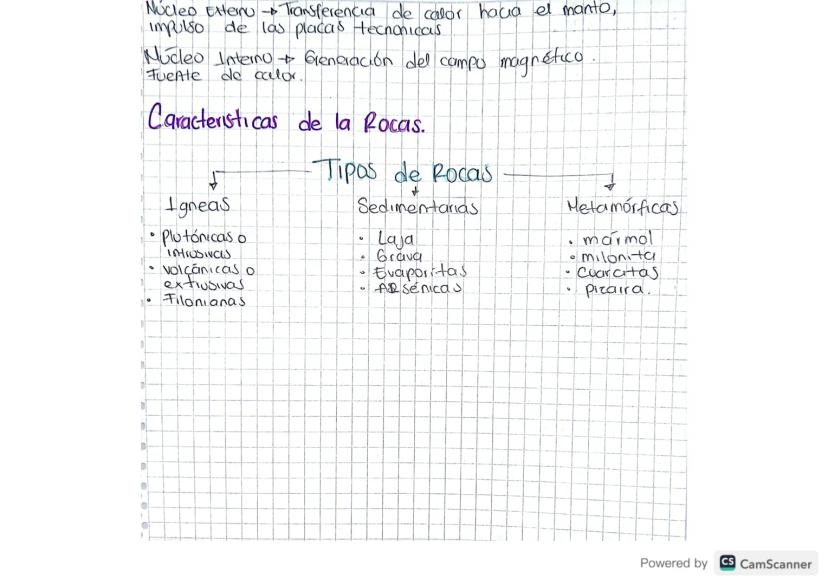 Núcleo Externo → Transferencia de calor hacia el manto,
impulso de las placas tecnonicas
Núcleo Interno → Generación del campo magnético.
Fuente de calor.
Caracteristicas de la Rocas.
Tipos de Rocas
Igneas Sedimentarias Metamórficas
• Plutónicas o • Laja • mármol
intrusivas • Grava • milonita
• volcánicas o • Evaporitas • Cuarcitas
extrusivas • ARsénicas • pizarra.
• Filonianas
Powered by CS CamScanner